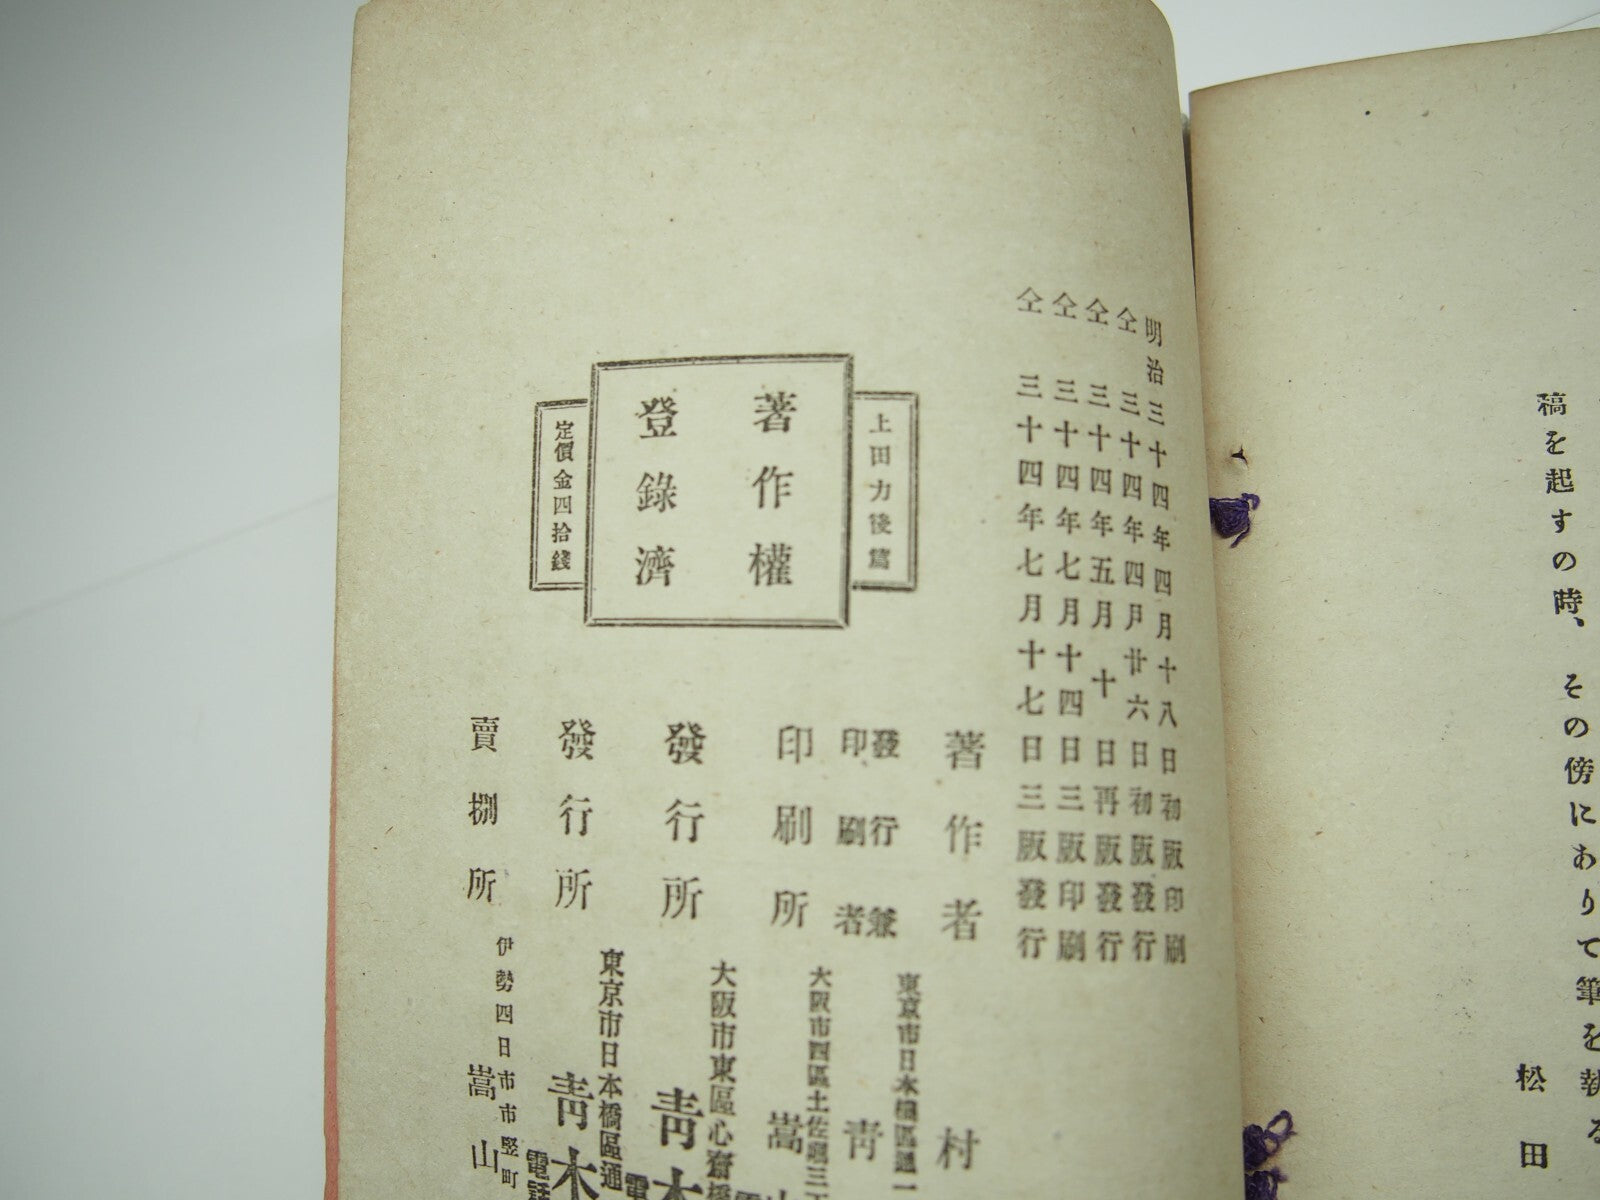 稿を起すの時、その傍にありて筆を執る
松田
明治三十四年四月十八日初版印刷
仝三十四年四月廿六日初版發行
仝三十四年五月十日再版發行
仝三十四年七月十四日三版印刷
仝三十四年七月十七日三版發行
上田力後篇
著作權
登錄濟
定價金四拾錢
著作者
村
發行兼
印刷者
東京市日本橋區通一
靑
印刷所
大阪市西區土佐堀三丁
嵩山
發行所
大阪市東區心齋橋
靑木
電
發行所
東京市日本橋區通
靑木
電話
賣捌所
伊勢四日市市竪町
嵩山